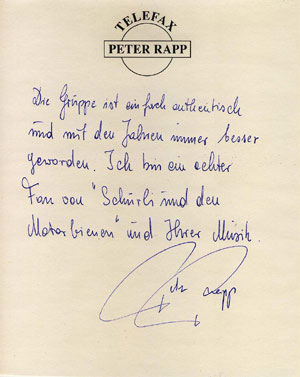 TELEFAX
PETER RAPP
Die Gruppe ist einfach authentisch
und mit den Jahren immer besser
geworden. Ich bin ein echter
Fan von "Schurli und den
Motorbienen" und Ihrer Musik.
Peter Rapp